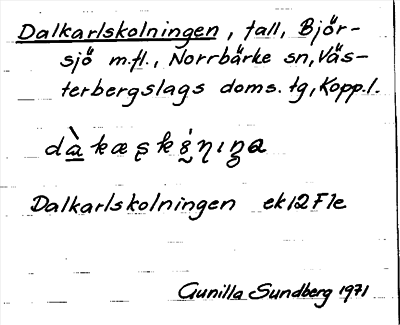 Dalkarlskolningen, tall, Björ-
sjö m.fl., Norrbärke sn, Väs-
terbergslags doms. tg, Kopp.l.
Dalkarlskolningen ek12F1e
Gunilla Sundberg 1971